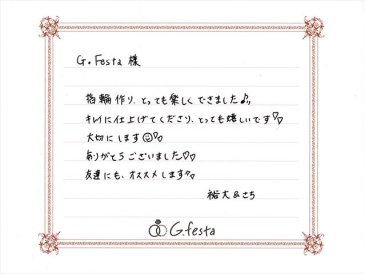 G.Festa 様
指輪作り、とっても楽しくできました♪
キレイに仕上げてくださり、とっても嬉しいです♡♡
大切にします☺♡
ありがとうございました♡♡
友達にも、オススメします♡
裕大&さち
G.festa